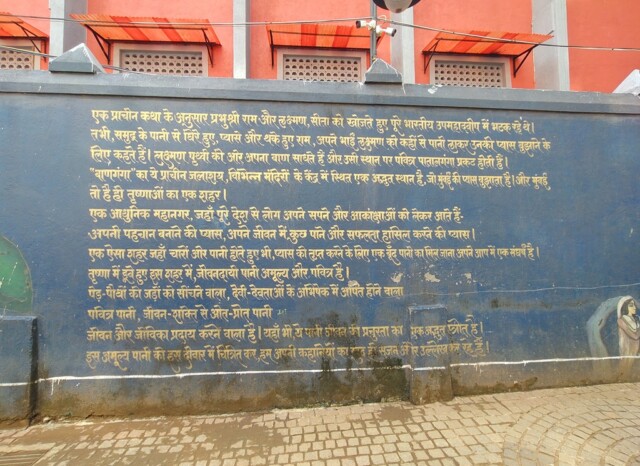 एक प्राचीन कथा के अनुसार प्रभु श्री राम और लक्ष्मण, सीता को खोजते हुए पूरे भारतीय उपमहाद्वीप में भटक रहे थे।
तभी, समुद्र के पानी से घिरे हुए, प्यासे और थके हुए राम, अपने भाई लक्ष्मण को कहीं से पानी लाकर उनकी प्यास बुझाने के
लिए कहते हैं। लक्ष्मण पृथ्वी की ओर अपना बाण साधते हैं और उसी स्थान पर पवित्र पातालगंगा प्रकट होती हैं।
"बाणगंगा" का ये प्राचीन जलाशय, विभिन्न मंदिरों के केंद्र में स्थित एक अद्भुत स्थान है, जो मुंबई की प्यास बुझाता है। और मुंबई
तो है ही तृष्णाओं का एक शहर।
एक आधुनिक महानगर, जहाँ पूरे देश से लोग अपने सपने और आकांक्षाओं को लेकर आते हैं-
अपनी पहचान बनाने की प्यास, अपने जीवन में, कुछ पाने और सफलता हासिल करने की प्यास।
एक ऐसा शहर जहाँ चारों और पानी होते हुए भी, प्यास को तृप्त करने के लिए एक बूंद पानी का मिल जाना अपने आप में एक संघर्ष है।
तृष्णा में डूबे हुए इस शहर में, जीवनदायी पानी अमूल्य और पवित्र है।
पेड़-पौधों की जड़ों को सींचने वाला, देवी-देवताओं के अभिषेक में अर्पित होने वाला
पवित्र पानी, जीवन-शक्ति से ओत-प्रोत पानी
जीवन और जीविका प्रदाय करने वाला है। यहाँ भी ये पानी जीवन की प्रचुरता का एक अद्भुत स्रोत है।
इस अमूल्य पानी को इस दीवार में चित्रित कर, हम अपनी कहानियों का और उल्लेख कर रहे हैं।